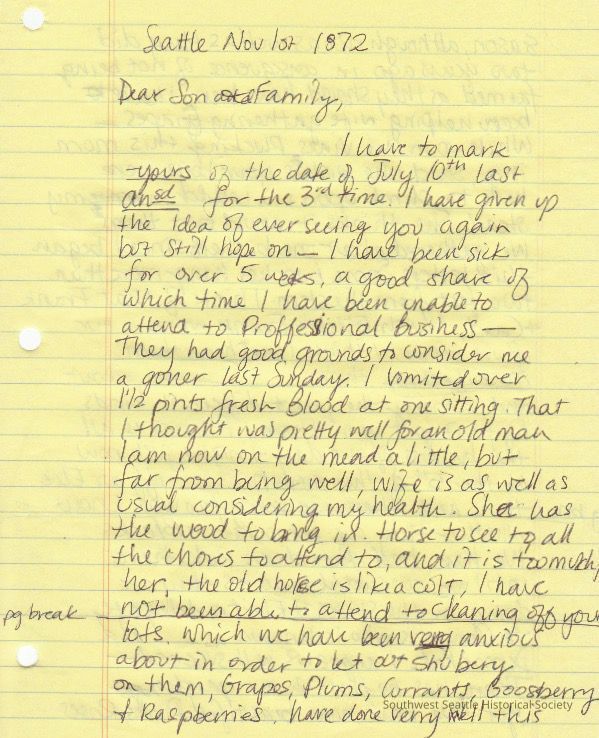 Seattle Nov 1st 1872
Dear Son and Family,
I have to mark
yours of the date of July 10th last
ansd for the 3rd time. I have given up
the Idea of ever seeing you again
but still hope on — I have been sick
for over 5 weeks, a good share of
which time I have been unable to
attend to Proffessional business —
They had good grounds to consider me
a goner last Sunday. I vomited over
1 1/2 pints fresh Blood at one sitting. That
I thought was pretty well for an old man
I am now on the mend a little, but
far from being well, wife is as well as
usual considering my health. She has
the wood to bring in. Horse to see to, all
the chores to attend to, and it is too much,
her, the old horse is like a colt, I have
pg break
not been able to attend to cleaning off your
lots. which we have been very anxious
about in order to let out Shubery
on them, Grapes, Plums, Currants, Goosberry
& Raspberries, have done verry well this
Southwest Seattle Historical Society